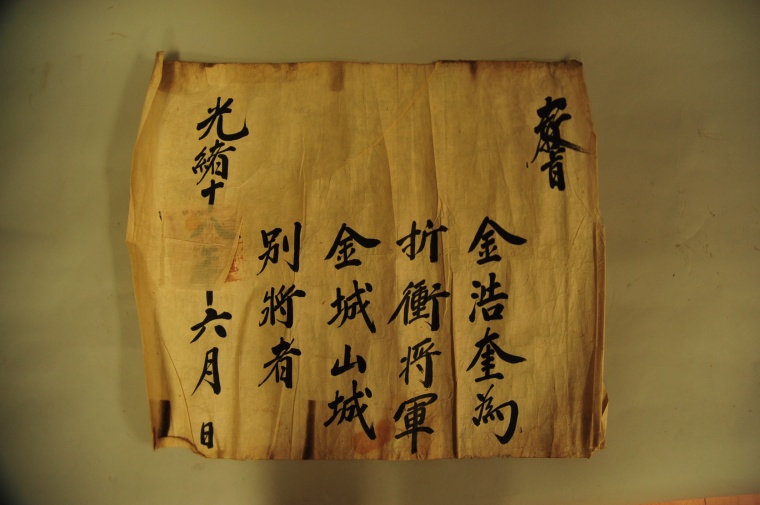 教旨
金浩奎為
折衝將軍
金城山城
別將者
光緒十八年六月 日